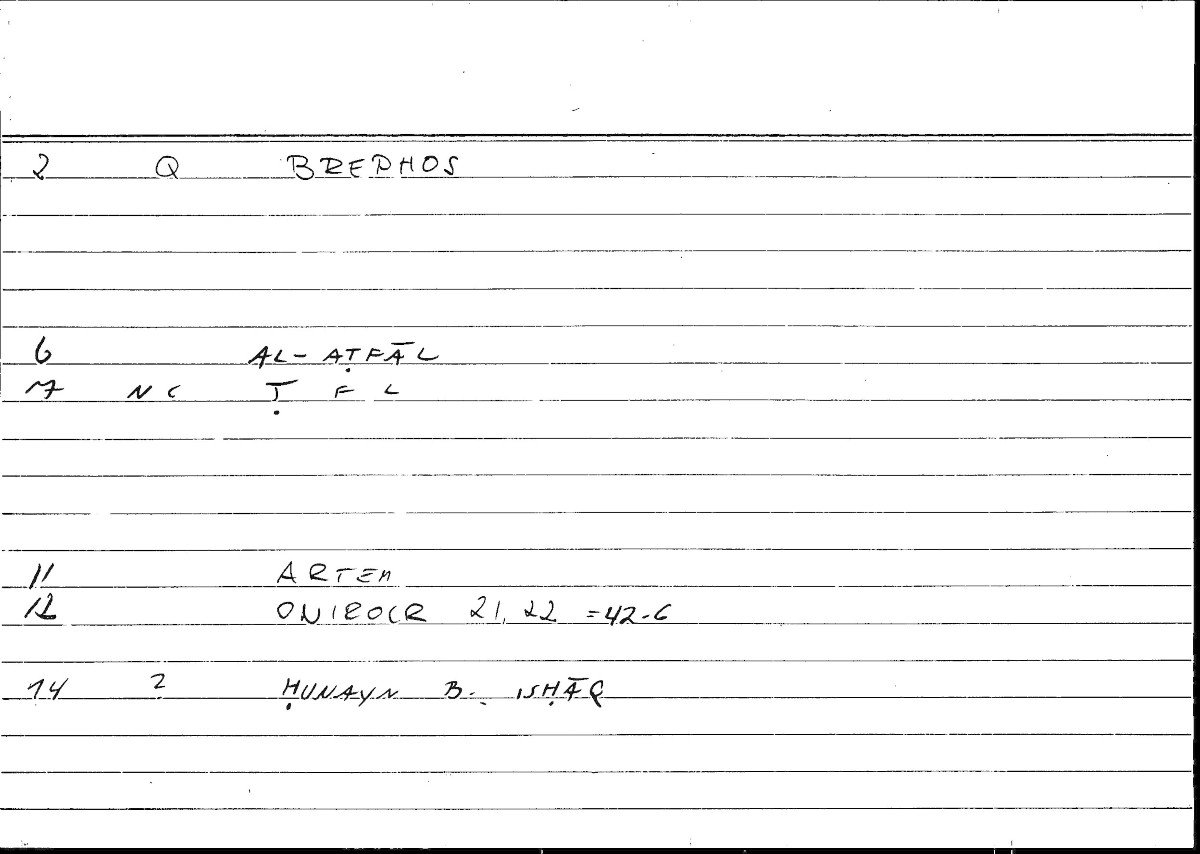 2 Q BREPHOS
6 AL-AṬFĀL
7 NC Ṭ F L
11 ARTEM
12 ONIROCR 21,22 =42-6
14 2 ḤUNAYN B. ISḤĀQ